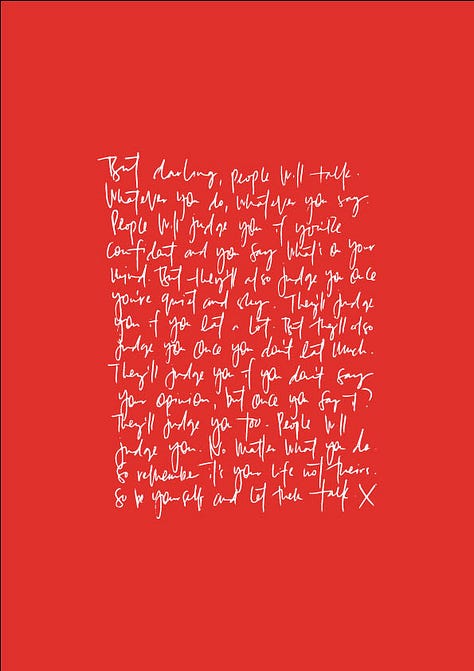 But darling, people will talk.
Whatever you do, whatever you say.
People will judge you if you're
confident and you say what's on your
mind. But they'll also judge you once
you're quiet and shy. They'll judge
you if you eat a lot. But they'll also
judge you once you don't eat much.
They'll judge you if you don't say
your opinion, but once you say it?
They'll judge you too. People will
judge you. No matter what you do.
So remember it's your life not theirs.
So be yourself and let them talk X